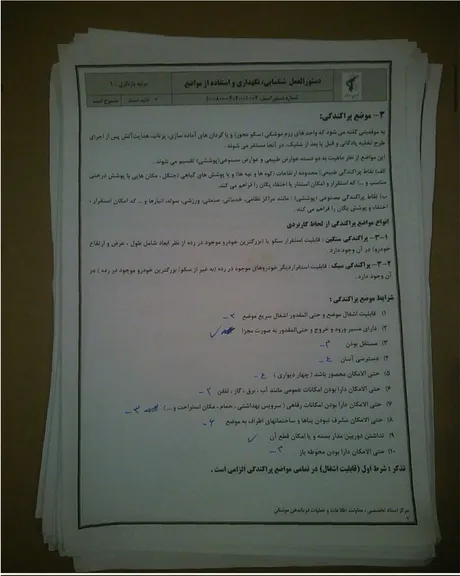 دستورالعمل شناسایی، نگهداری و استفاده از مواضع
مرتبه بازنگری : ۱
شماره دستورالعمل
۳- موضع پراکندگی:
به موقعیتی گفته می شود که واحد های رزم موشکی (سکو محور) و یا گردان های آماده سازی، پرتاب، هدایت آتش پس از اجرای
طرح تخلیه پادگانی و قبل یا بعد از شلیک، در آنجا مستقر می شوند.
این مواضع از نظر ماهیت به دو دسته عوارض طبیعی و عوارض مصنوعی(پوششی) تقسیم می شوند.
الف) نقاط پراکندگی طبیعی: محدوده ارتفاعات (کوه ها و تپه ها) و یا پوشش های گیاهی (جنگل ، مکان هایی با پوشش درختی
مناسب و ...) که استقرار و امکان استتار یا اختفاء یگان را فراهم می کند.
ب) نقاط پراکندگی مصنوعی (پوششی) : مانند مراکز نظامی، خدماتی، صنعتی، ورزشی، سوله، انبارها و ... که امکان استقرار ،
اختفاء و پوشش یگان را فراهم می کند.
انواع مواضع پراکندگی از لحاظ کاربردی
۳-۱- پراکندگی سنگین : قابلیت استقرار سکو یا (بزرگترین خودرو موجود در رده از نظر ابعاد شامل طول ، عرض و ارتفاع
خودرو) در آن وجود دارد.
۳-۲- پراکندگی سبک : قابلیت استقرار دیگر خودروهای موجود در رده (به غیر از سکو/ بزرگترین خودرو موجود در رده ) در
آن وجود دارد.
شرایط موضع پراکندگی :
۱) قابلیت اشغال موضع و حتی المقدور اشغال سریع موضع
۲) دارای مسیر ورود و خروج و حتی‌المقدور به صورت مجزا
۳) مستقل بودن
۴) دسترسی آسان
۵) حتی الامکان محصور باشد ( چهار دیواری )
۶) حتی الامکان دارا بودن امکانات عمومی مانند آب ، برق ، گاز ، تلفن
۷) حتی الامکان دارا بودن امکانات رفاهی ( سرویس بهداشتی ، حمام ، مکان استراحت و ...)
۸) حتی الامکان مشرف نبودن بناها و ساختمانهای اطراف به موضع
۹) نداشتن دوربین مدار بسته و یا امکان قطع آن
۱۰) حتی الامکان دارا بودن محوطه باز
تذکر : شرط اول (قابلیت اشغال) در تمامی مواضع پراکندگی الزامی است .
مرکز اسناد تخصصی ، معاونت اطلاعات و عملیات فرماندهی موشکی